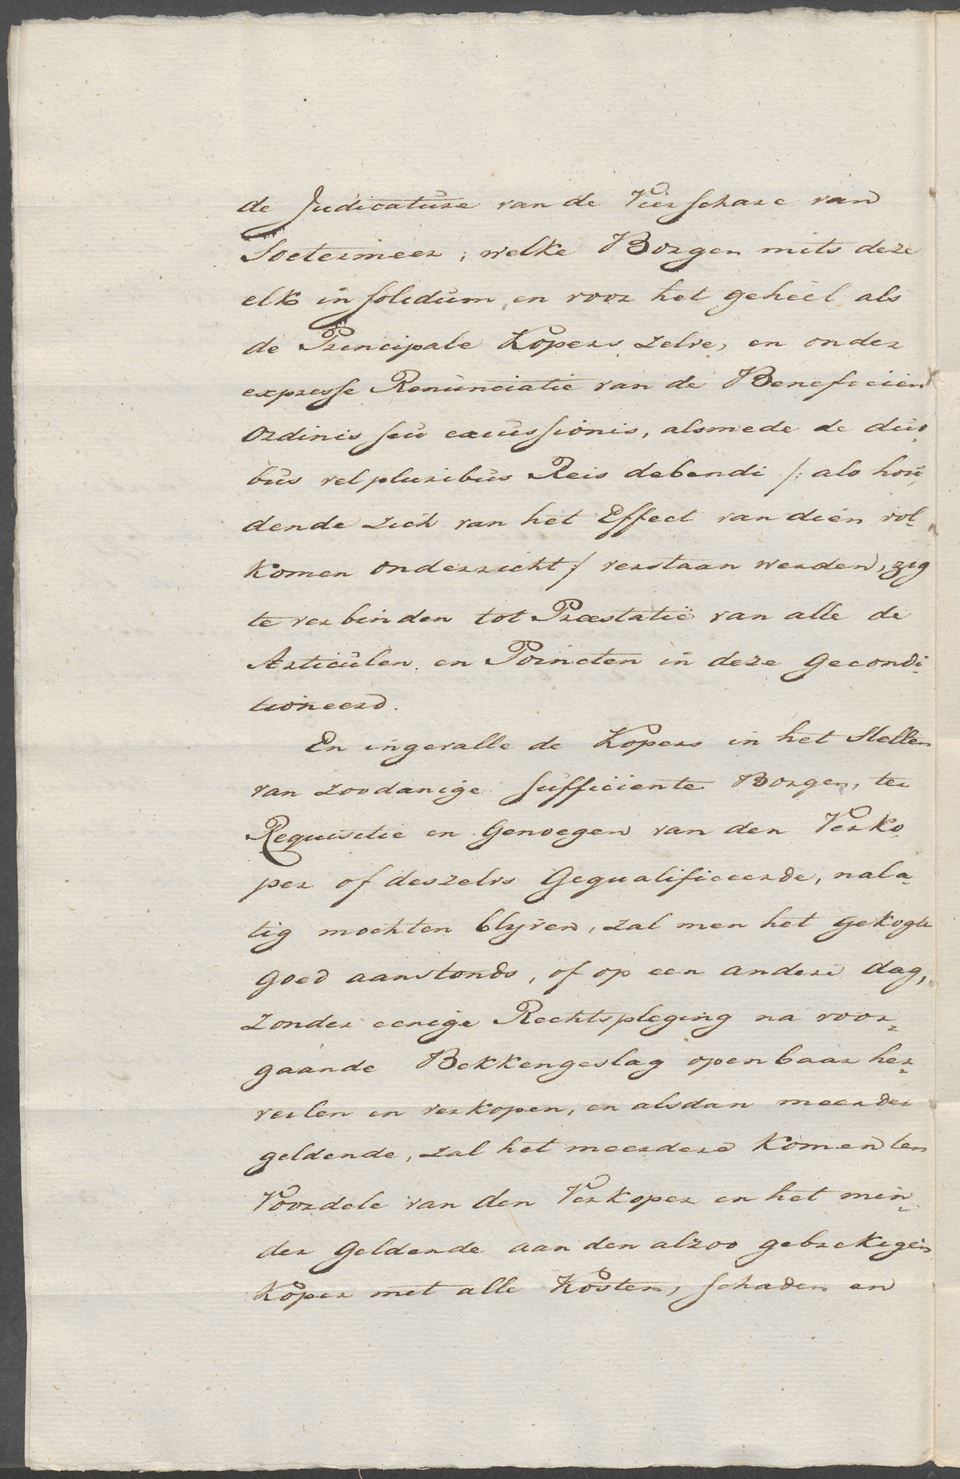 de Judicature van de Vierschare van
Soetermeer; welke Borgen mits deze
elk in solidum en voor het geheel als
de Principale Kopers zelve, en onder
expresse Renunciatie van de Beneficien
Ordinis seu excussionis, alsmede de duo
bus vel pluribus Reis debendi /: als hou
dende zich van het Effect van dien vol-
komen onderricht / verstaan werden, zig
te verbinden tot Præstatie van alle de
Articulen en Poincten in deze gecondi-
tioneerd.
En ingevalle de Kopers in het stellen
van zoodanige sufficiente Borgen, ter
Requisitie en Genoegen van den Verko-
per of deszelvs Gequalificeerde, nala-
tig mochten blyven, zal men het gekogte
goed aanstonds, of op een andere dag,
zonder eenige Rechtspleging na voor-
gaande Bekkengeslag openbaar her-
veilen en verkopen, en alsdan meerder
geldende, zal het meerdere komen ten
Voordele van den Verkoper en het min-
der geldende aan den alzoo gebrekigen
Koper met alle Kosten, schaden en